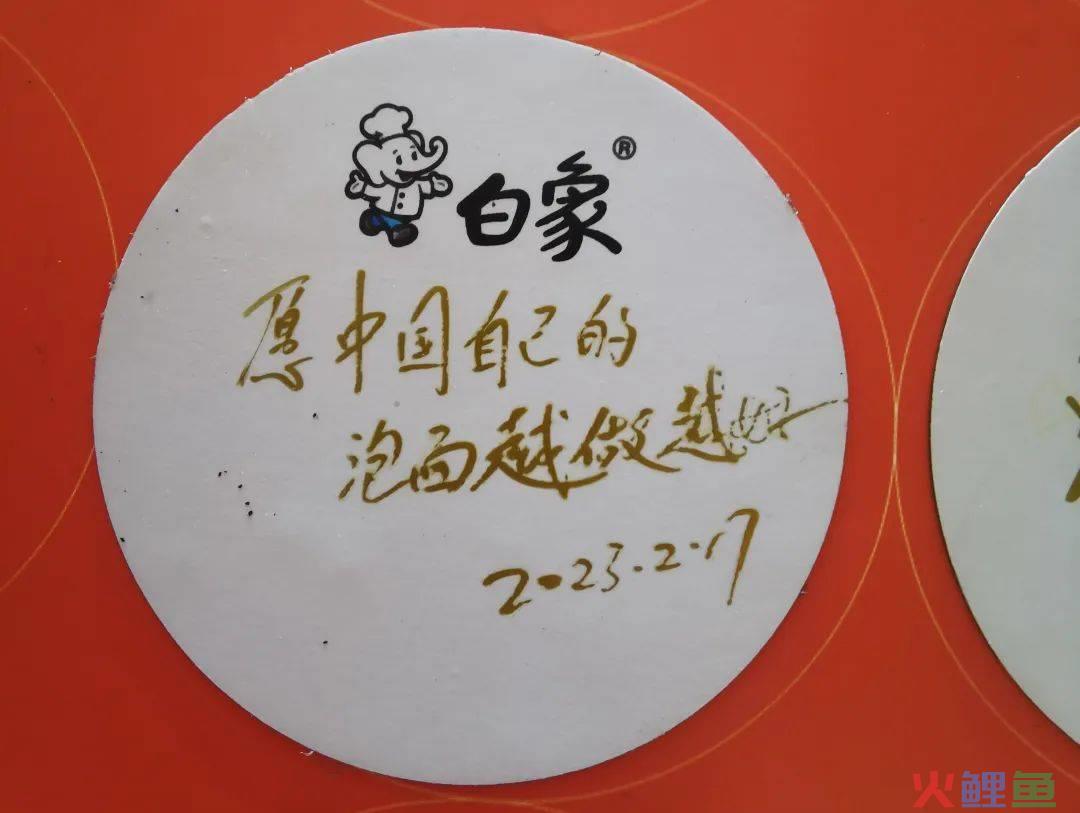 白象®
愿中国自己的
泡面越做越好
2023.2.17
火鲤鱼